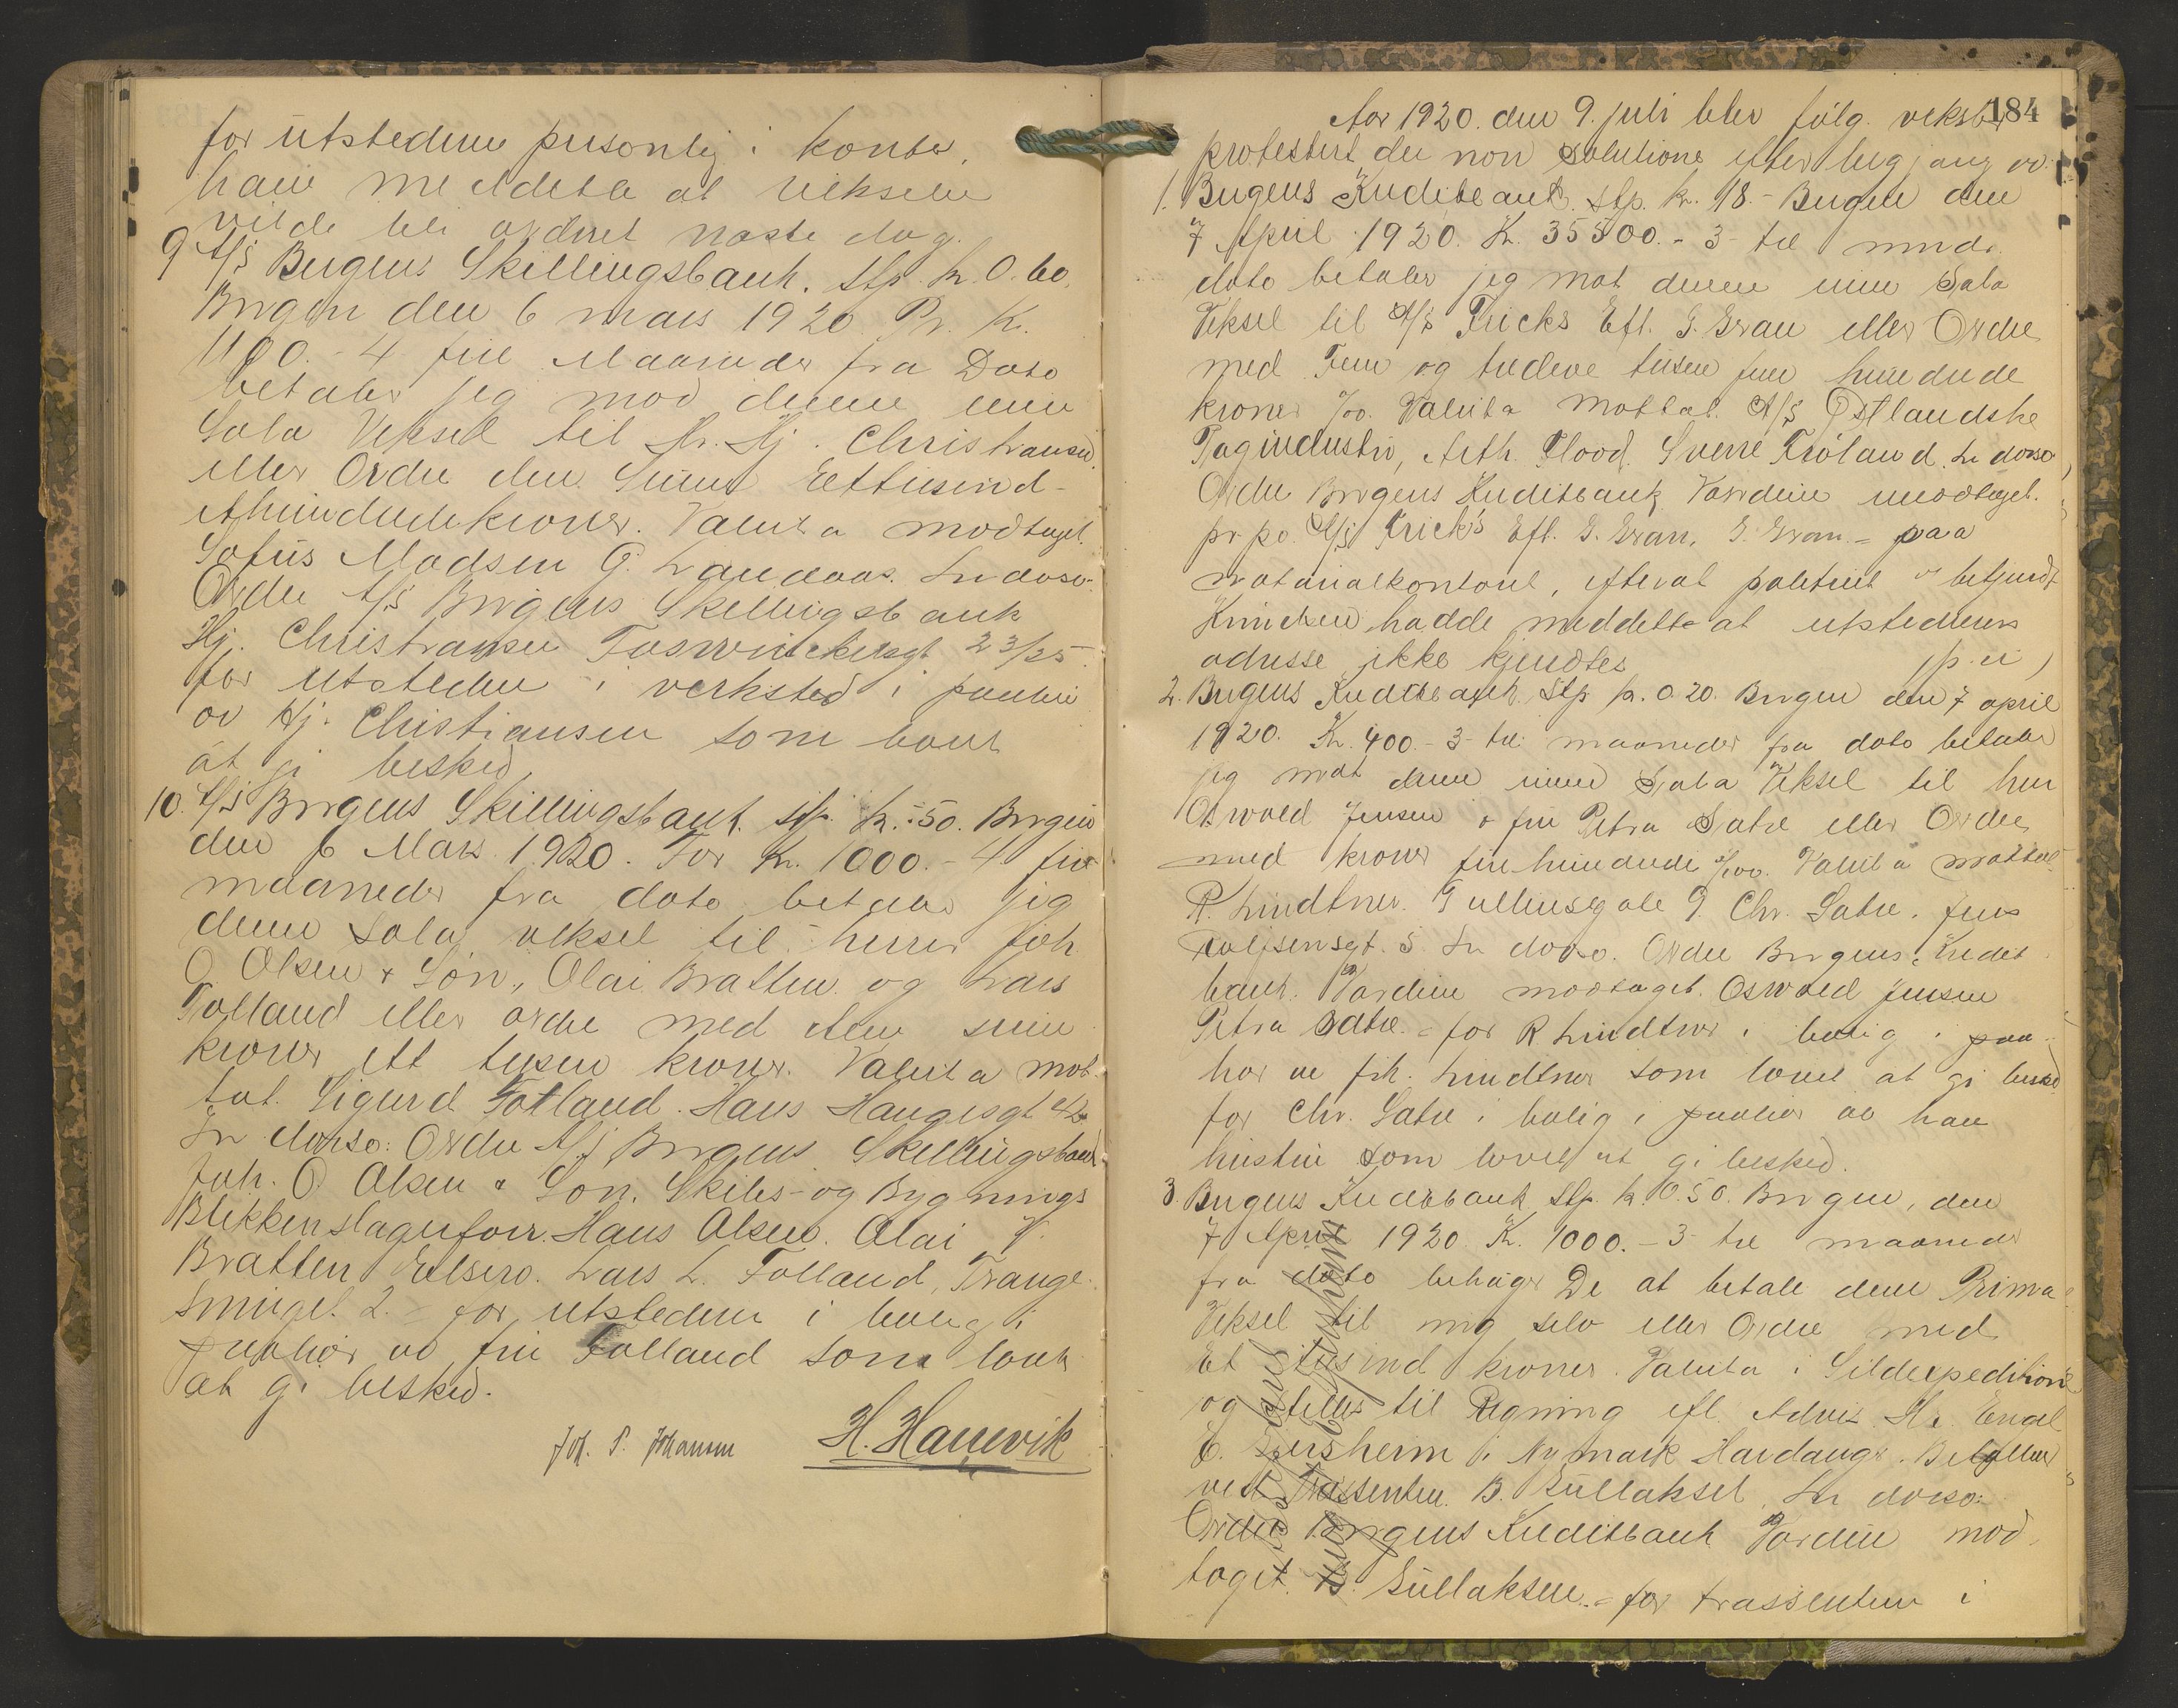 for utstederne personlig i kontor,
han meddelte at vekselen
vilde bli ordnet næste dag.
9 A/S Bergens Skillingsbank. Stp. kr. 0.60.
Bergen den 6 mars 1920. Pr. Kr.
1100.- 4 fire Maaneder fra Dato
betaler jeg mod denne min
Sola Veksel til Hr. Hj. Christiansen
eller Ordre den Summa Ettusind-
ethundredekroner. Valuta modtaget.
Sofus Madsen G. Landaas. In dorso:
Ordre A/S Bergens Skillingsbank
Hj. Christiansen 23/25.
for utstederen i verksted i paahør
av Hj. Christiansen som lovet
at gi besked
10. A/S Bergens Skillingsbank. Stp. kr. -.50. Bergen
den 6 Mars 1920. For Kr. 1000.- 4 fire
maaneder fra dato betaler jeg
denne Sola veksel til herrer Joh.
O. Olsen & Søn, Olai Bratten og Lars
Folland eller ordre med den sum
kroner ett tusen kroner. Valuta mot-
tat. Sigurd Folland. Hans Haugesgt 42
In dorso: Ordre A/S Bergens Skillingsbank
Joh. O. Olsen & Søn. Skibs- og Bygnings
Blikkenslagerforr. Hans Olsen. Olai V.
Bratten Eilsero. Lars L. Folland, Trange-
smuget 2. = for utstederen i bolig i
paahør av fru Folland som lovet
at gi besked.
Joh. P. Johansen H. Hanevik
184
Aar 1920. den 9. juli blev følg. veksler
protestert de non solutione efter begjæring av
1. Bergens Kreditbank. Stp. kr. 18.- Bergen den
7 April 1920. Kr. 35500.- 3- tre mndr.
dato betaler jeg mot denne min Sola
Veksel til A/S Fricks Eft. G. Gran eller Ordre
med Fem og tredeve tusen fem hundrede
kroner °/oo. Valuta mottat. A/S Østlandske
Tagindustri, Arth. Flood. Sverre Frøland. In dorso
Ordre Bergens Kreditbank Værdien modtaget.
pr. po. A/S Frick's Eft. G. Gran. G. Gran. = paa
notarialkontoret, efterat politiet
hadde meddelt at utstederens
adresse ikke kjendtes
2. Bergens Kreditbank. Stp kr. 0.20. Bergen den 7 april
1920. Kr. 400.- 3- tre maaneder fra dato betaler
jeg mot denne min Sola Veksel til herr
Oswald Jensen & fru Petra Sætre eller Ordre
med kroner fire hundrede °/oo. Valuta mottat.
R. Lindtner. Tullinsgate 9. Chr. Sætre. Jens
Rolfsensgt. 5. In dorso. Ordre Bergens Kredit
bank. Værdien modtaget. Oswald Jensen
Petra Sætre. = for R Lindtner i bolig i paa-
hør av frk. Lindtner som lovet at gi besked
for Chr. Sætre i bolig i paahør av hans
hustru som lovet at gi besked.
3. Bergens Kreditbank Stp. kr. 0.50. Bergen, den
7 April 1920 Kr. 1000.- 3- tre maaneder
fra dato behager De at betale denne Prima
Veksel til mig selv eller Ordre med
Et tusind kroner. Valuta i Sildexpedition
og stilles til Regning efl. Advis. Hr. Engel
E. i Nymark Hardanger. Betalbar
ved Trassenten. B. Gullaksel. In dorso:
Ordre Bergens Kreditbank Værdien mod-
taget. B. Gullaksen. = for trassenten i